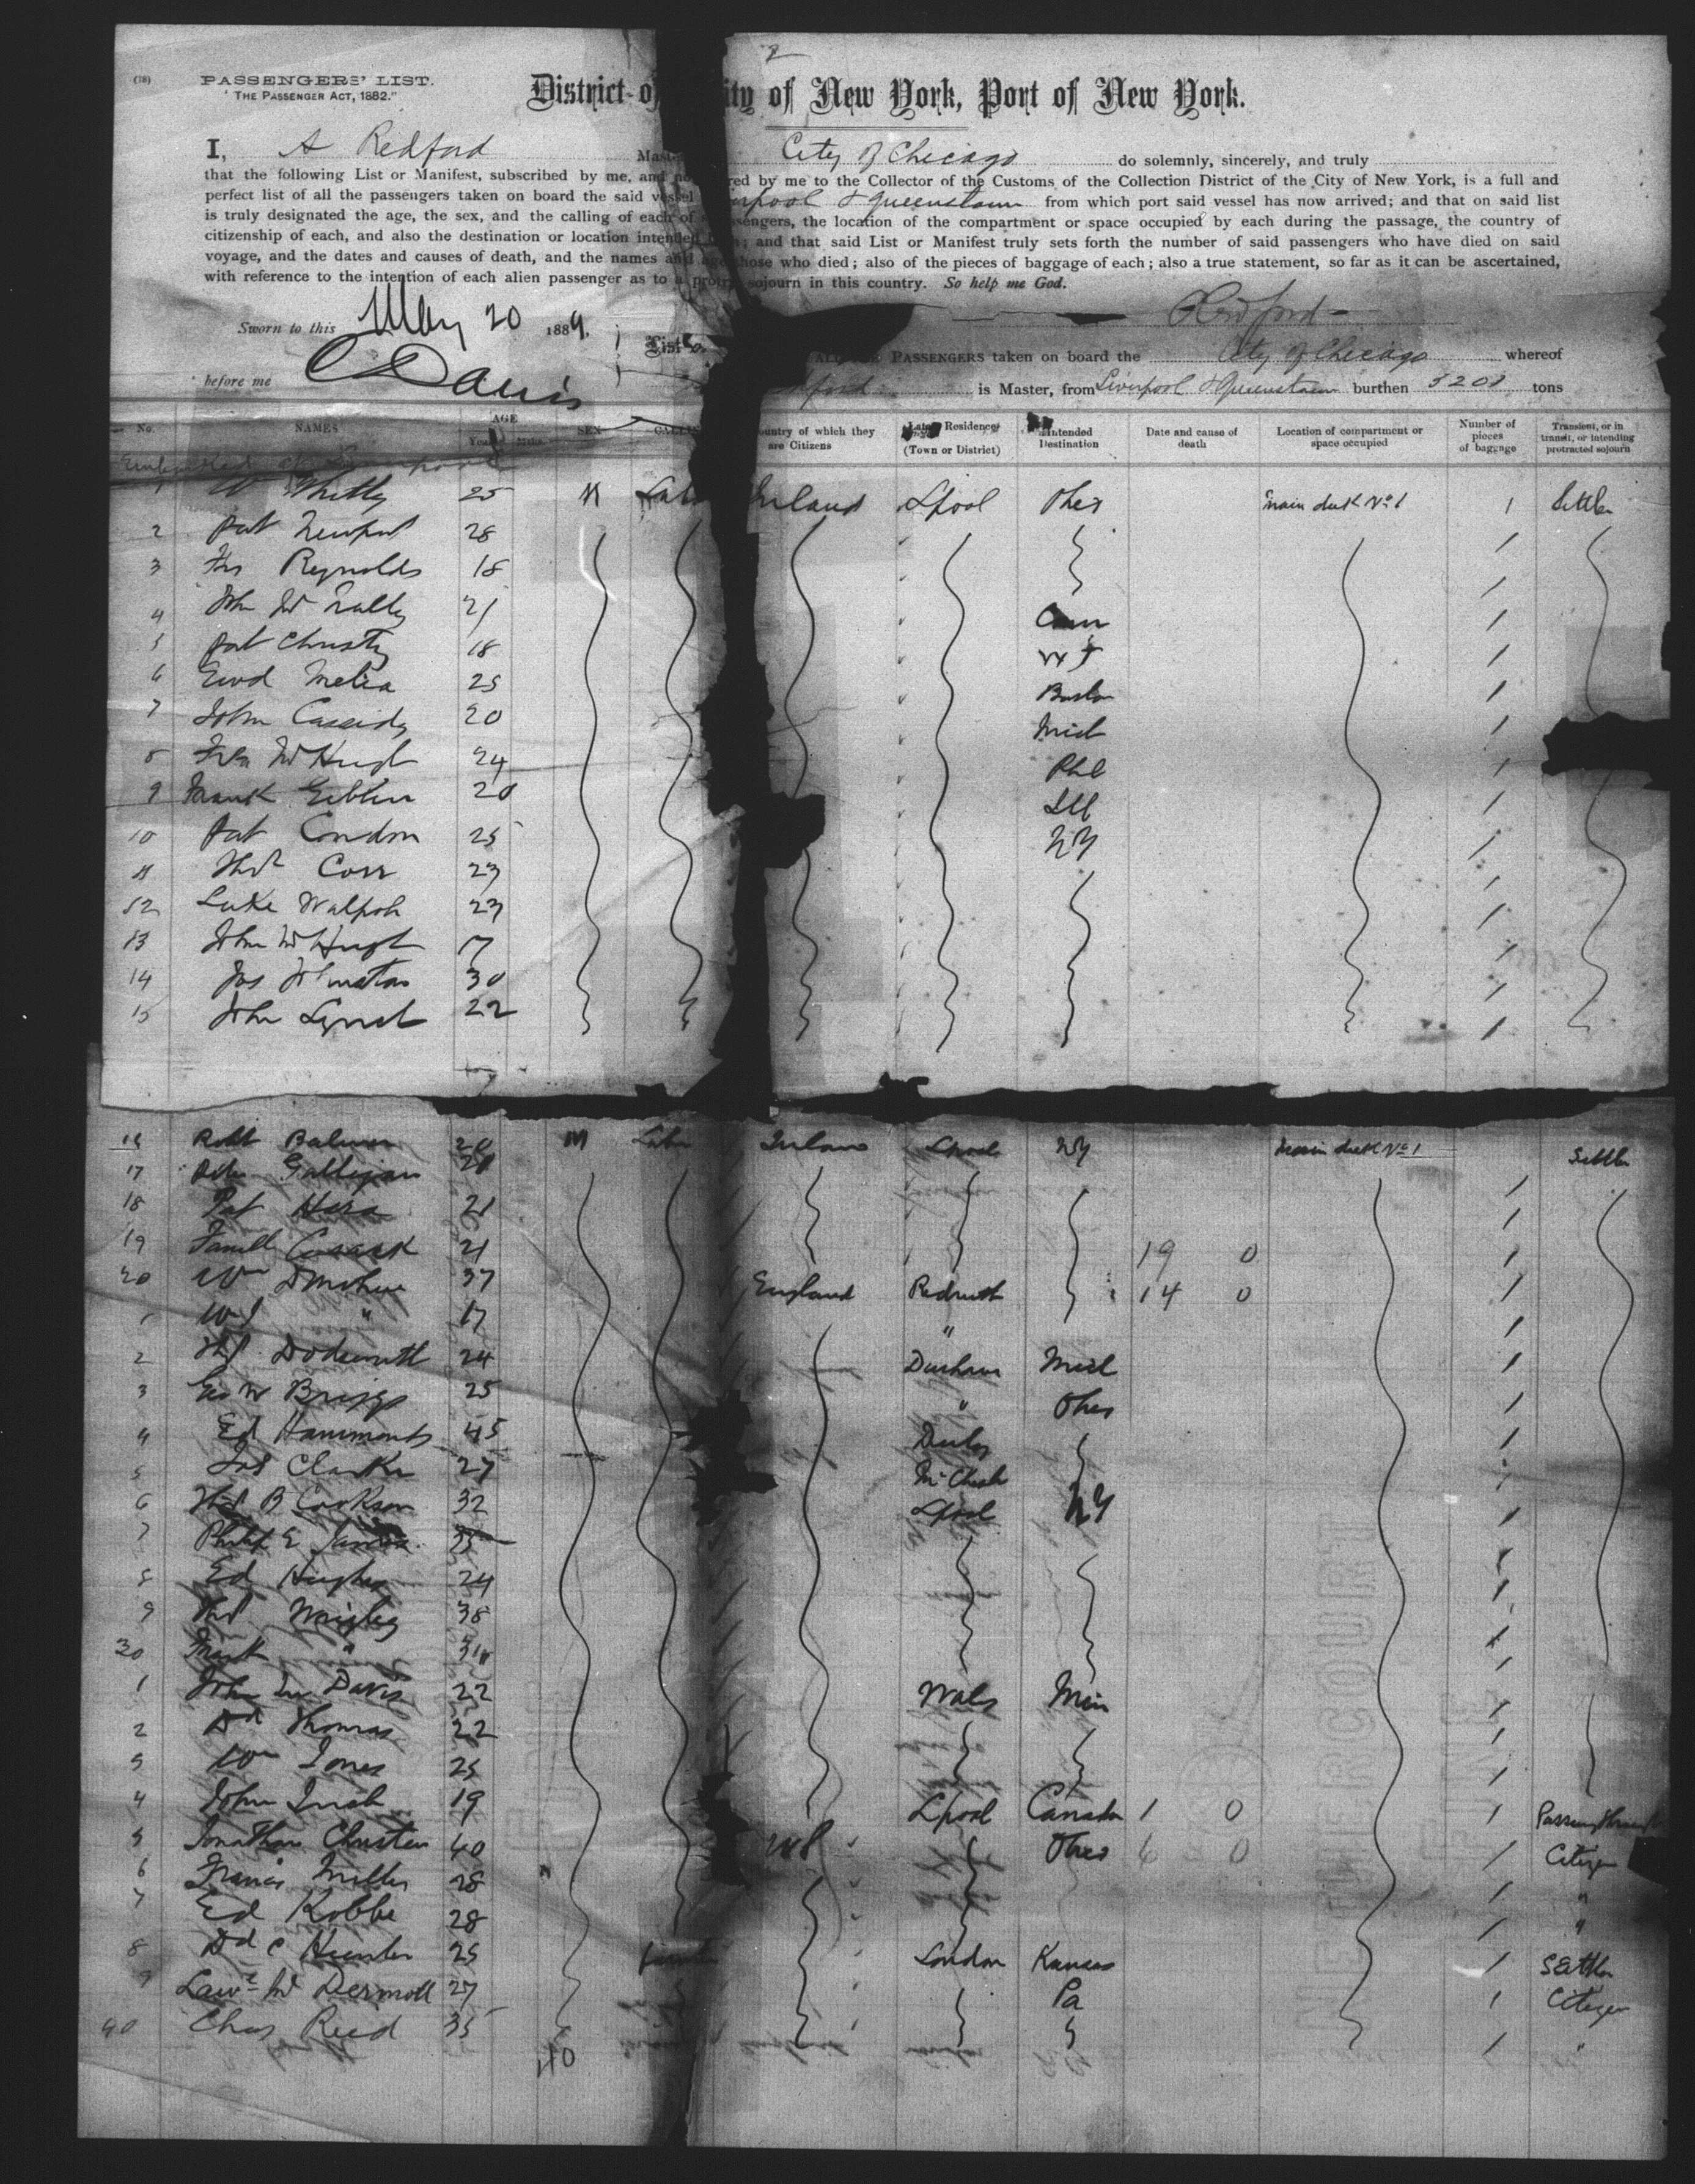 2
(18)
PASSENGERS' LIST.
"THE PASSENGER ACT, 1882."
District of ity of New York, Port of New York.
I, A Redford Maste City of Chicago do solemnly, sincerely, and truly
that the following List or Manifest, subscribed by me, and no red by me to the Collector of the Customs of the Collection District of the City of New York, is a full and
perfect list of all the passengers taken on board the said vessel erpool & Queenstown from which port said vessel has now arrived; and that on said list
is truly designated the age, the sex, and the calling of each of ssengers, the location of the compartment or space occupied by each during the passage, the country of
citizenship of each, and also the destination or location intended ; and that said List or Manifest truly sets forth the number of said passengers who have died on said
voyage, and the dates and causes of death, and the names and age those who died; also of the pieces of baggage of each; also a true statement, so far as it can be ascertained,
with reference to the intention of each alien passenger as to a protra sojourn in this country. So help me God.
Sworn to this May 20 1889. Redford
before me Davis
List ALL PASSENGERS taken on board the City of Chicago whereof
dford is Master, from Liverpool & Queenstown burthen 5202 tons
No. NAMES AGE Years Mths. SEX CALLIN ountry of which they are Citizens Residence (Town or District) Intended Destination Date and cause of death Location of compartment or space occupied Number of pieces of baggage Transient, or in transit, or intending protracted sojourn
1 W 25 M Lab Ireland Lpool Ohio Main deck No 1 1 Settler
2 Pat Newport 28 1
3 Reynolds 18 1
4 John McNally 21 Conn 1
5 Pat Christy 18 1
6 Edwd Melia 25 Boston 1
7 John Cassidy 20 Mich 1
8 McHugh 24 Phl 1
9 Frank Giblin 20 Ill 1
10 Pat Condon 25 NY 1
11 Thos Corr 23 1
12 Luke Walpole 23 1
13 John McHugh 17 1
14 Jas Johnston 30 1
15 John Lynch 22 1
16 Robt Balmer 20 M Labr Ireland Lpool NY Main deck No 1 Settler
17 Galligan 21 1
18 Pat Hara 21 1
19 Farrell Cusack 21 19 0 1
20 Wm Donohue 37 England Redruth 14 0 1
1 WJ " 17 " 1
2 Thos Dodsworth 24 Durham Mich 1
3 Geo W Briggs 25 " Ohio 1
4 Ed Hammonds 45 Derby 1
5 Jas Clarke 27 1
6 Thos B Cookson 32 Lpool NY 1
7 Philip E James 35
8 Ed Hughes 24 1
9 Thos Wrigley 38 1
30 Frank "
1 John Davis 22 Wales Min 1
2 Dd Thomas 22 1
3 Wm Jones 25 1
4 John Irish 19 Lpool Canada 1 0 1
5 Jonathan Christen 40 Ohio 6 0 1 Citizen
6 Francis Miller 28 1 "
7 Ed Kobbe 28 1 "
8 Dd C Hunter 25 London Kansas 1 Settler
9 Lawce McDermott 27 Pa 1 Citizen
40 Chas Reed 35 1 "
40